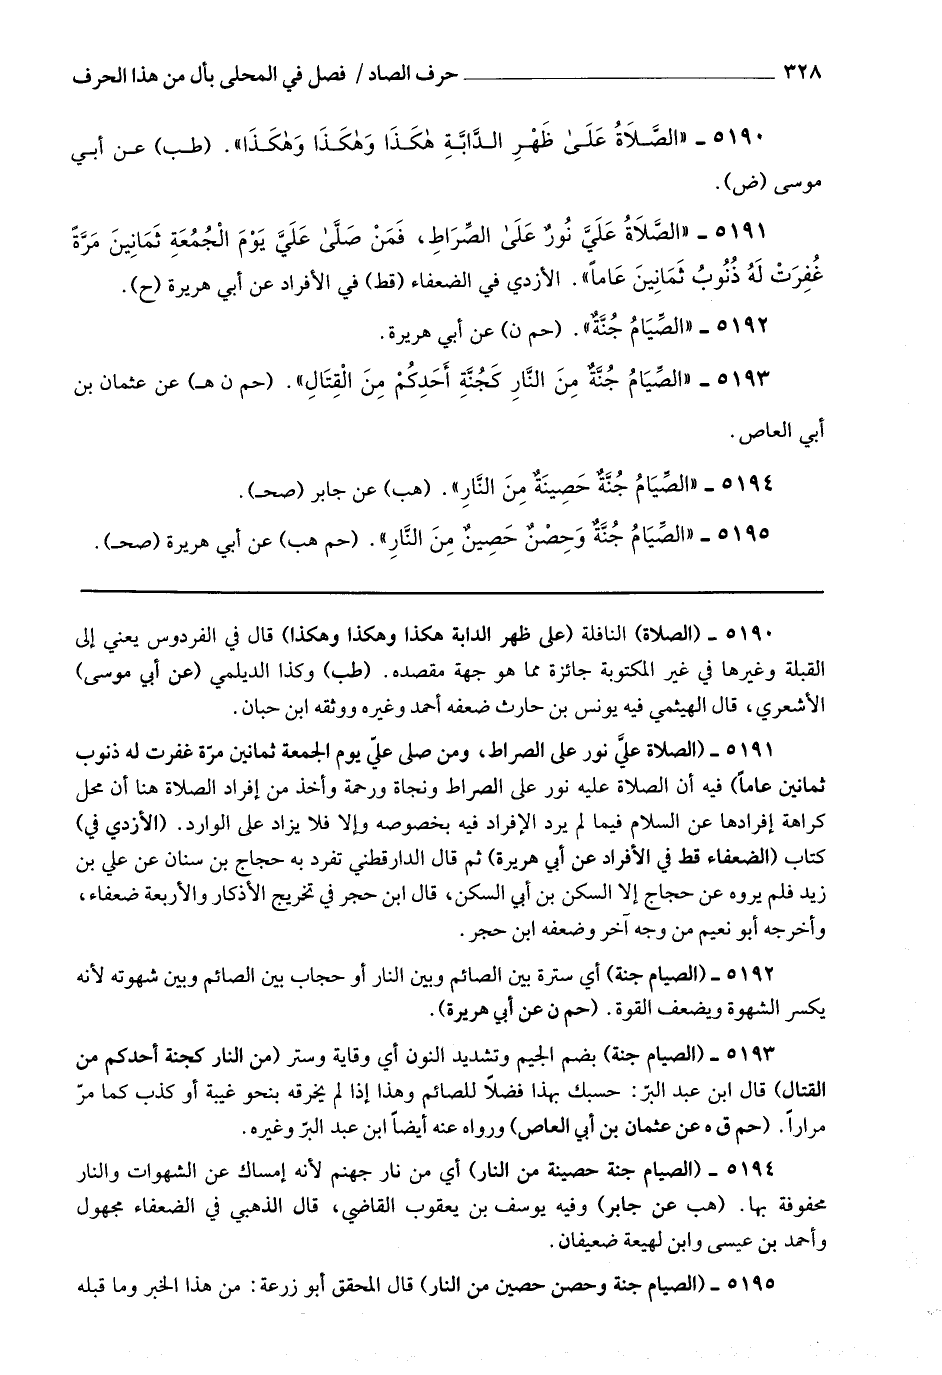 ٣٢٨ حرف الصاد/ فصل في المحلى بأل من هذا الحرف
٥١٩٠ ـ «الصَّلَاةُ عَلَىٰ ظَهْرِ الدَّابَّةِ هٰكَذَا وَهٰكَذَا وَهٰكَذَا». (طب) عن أبي
موسى (ض).
٥١٩١ ـ «الصَّلَاةُ عَلَيَّ نُورٌ عَلَىٰ الصِّرَاطِ، فَمَنْ صَلَّىٰ عَلَيَّ يَوْمَ الْجُمُعَةِ ثَمَانِينَ مَرَّةً
غُفِرَتْ لَهُ ذُنُوبُ ثَمَانِينَ عَاماً». الأزدي في الضعفاء (قط) في الأفراد عن أبي هريرة (ح).
٥١٩٢ ـ «الصِّيَامُ جُنَّةٌ». (حم ن) عن أبي هريرة.
٥١٩٣ ـ «الصِّيَامُ جُنَّةٌ مِنَ النَّارِ كَجُنَّةِ أَحَدِكُمْ مِنَ الْقِتَالِ». (حم ن هـ) عن عثمان بن
أبي العاص.
٥١٩٤ ـ «الصِّيَامُ جُنَّةٌ حَصِينَةٌ مِنَ النَّارِ». (هب) عن جابر (صحـ).
٥١٩٥ ـ «الصِّيَامُ جُنَّةٌ وَحِصْنٌ حَصِينٌ مِنَ النَّارِ». (حم هب) عن أبي هريرة (صحـ).
٥١٩٠ ـ (الصلاة) النافلة (على ظهر الدابة هكذا وهكذا وهكذا) قال في الفردوس يعني إلى
القبلة وغيرها في غير المكتوبة جائزة مما هو جهة مقصده. (طب) وكذا الديلمي (عن أبي موسى)
الأشعري، قال الهيثمي فيه يونس بن حارث ضعفه أحمد وغيره ووثقه ابن حبان.
٥١٩١ ـ (الصلاة عليَّ نور على الصراط، ومن صلى عليّ يوم الجمعة ثمانين مرّة غفرت له ذنوب
ثمانين عاماً) فيه أن الصلاة عليه نور على الصراط ونجاة ورحمة وأخذ من إفراد الصلاة هنا أن محل
كراهة إفرادها عن السلام فيما لم يرد الإفراد فيه بخصوصه وإلا فلا يزاد على الوارد. (الأزدي في)
كتاب (الضعفاء قط في الأفراد عن أبي هريرة) ثم قال الدارقطني تفرد به حجاج بن سنان عن علي بن
زيد فلم يروه عن حجاج إلا السكن بن أبي السكن، قال ابن حجر في تخريج الأذكار والأربعة ضعفاء،
وأخرجه أبو نعيم من وجه آخر وضعفه ابن حجر.
٥١٩٢ ـ (الصيام جنة) أي سترة بين الصائم وبين النار أو حجاب بين الصائم وبين شهوته لأنه
يكسر الشهوة ويضعف القوة. (حم ن عن أبي هريرة).
٥١٩٣ ـ (الصيام جنة) بضم الجيم وتشديد النون أي وقاية وستر (من النار كجنة أحدكم من
القتال) قال ابن عبد البرّ: حسبك بهذا فضلاً للصائم وهذا إذا لم يخرقه بنحو غيبة أو كذب كما مرّ
مراراً. (حم ق ه عن عثمان بن أبي العاص) ورواه عنه أيضاً ابن عبد البرّ وغيره.
٥١٩٤ ـ (الصيام جنة حصينة من النار) أي من نار جهنم لأنه إمساك عن الشهوات والنار
محفوفة بها. (هب عن جابر) وفيه يوسف بن يعقوب القاضي، قال الذهبي في الضعفاء مجهول
وأحمد بن عيسى وابن لهيعة ضعيفان.
٥١٩٥ ـ (الصيام جنة وحصن حصين من النار) قال المحقق أبو زرعة: من هذا الخبر وما قبله